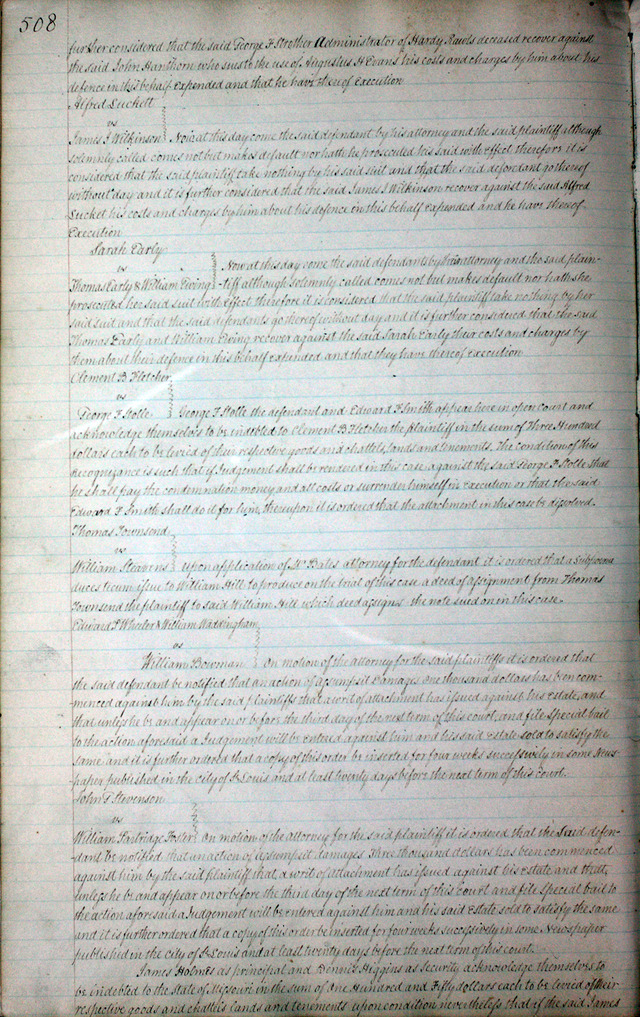 508
further considered that the said George F Strother Administrator of Hardy Rawls deceased recover against
the said John Hanthorn who sues to the use of Augustus H Evans his costs and charges by him about his
defence in this behalf expended and that he have thereof execution
Alfred Luckett
vs
James J Wilkinson Now at this day come the said defendant by his attorney and the said plaintiff although
solemnly called comes not but makes default nor hath he prosecuted his said with effect therefore it is
considered that the said plaintiff take nothing by his said suit and that the said defendant go thereof
without day and it is further considered that the said James J Wilkinson recover against the said Alfred
Lucket his costs and charges by him about his defence in this behalf expended and he have thereof
Execution
Sarah Early
vs
Thomas Early & William Ewing Now at this day come the said defendants by their attorney and the said plain-
tiff although solemnly called comes not but makes default nor hath she
prosecuted her said suit with effect therefore it is considered that the said plaintiff take nothing by her
said suit and that the said defendants go thereof without day and it is further considered that the said
Thomas Early and William Ewing recover against the said Sarah Early their costs and charges by
them about their defence in this behalf expended and that they have thereof execution
Clement B Fletcher
vs
George F Stolle George F Stolle the defendant and Edward F Smith appear here in open court and
acknowledge themselves to be indebted to Clement B Fletcher the plaintiff in the sum of Three Hundred
dollars each to be levied of their respective goods and chattels, lands and tenements. The condition of this
recognizance is such that if Judgement shall be rendered in this case against the said George F Stolle that
he shall pay the condemnation money and all costs or surrender himself in execution or that the said
Edward F Smith shall do it for him, thereupon it is ordered that the attachment in this case be dissolved.
Thomas Townsend
vs
William Stearns upon application of Mr Bates attorney for the defendant it is ordered that a Subpoena
duces tecum issue to William Hill to produce on the trial of this case a deed of assignment from Thomas
Townsend the plaintiff to said William Hill which deed assigns the note sued on in this case.
Edward P Wheeler & William Waddingham
vs
William Bowman On motion of the attorney for the said plaintiffs it is ordered that
the said defendant be notified that an action of assumpsit damages one thousand dollars has been com-
menced against him by the said plaintiffs that a writ of attachment has issued against his estate and
that unless he be and appear on or before the third day of the next term of this court, and file special bail
to the action aforesaid a Judgement will be entered against him and his said estate sold to satisfy the
same and it is further ordered that a copy of this order be inserted for four weeks successively in some News-
paper published in the city of St Louis and at least twenty days before the next term of this court.
John T Stevenson
vs
William Partridge Foster On motion of the attorney for the said plaintiff it is ordered that the said defen-
dant be notified that an action of assumpsit damages Three thousand dollars has been commenced
against him by the said plaintiff that a writ of attachment has issued against his estate and that
unless he be and appear on or before the third day of the next term of this court and file special bail to
the action aforesaid a Judgement will be entered against him and his said estate sold to satisfy the same
and it is further ordered that a copy of this order be inserted for four weeks successively in some Newspaper
published in the city of St Louis and at least twenty days before the next term of this court.
James Holmes as principal and Dennis Higgins as Security acknowledge themselves to
be indebted to the State of Missouri in the sum of One Hundred and Fifty dollars each to be levied of their
respective goods and chattels lands and tenements upon condition nevertheless that if the said James